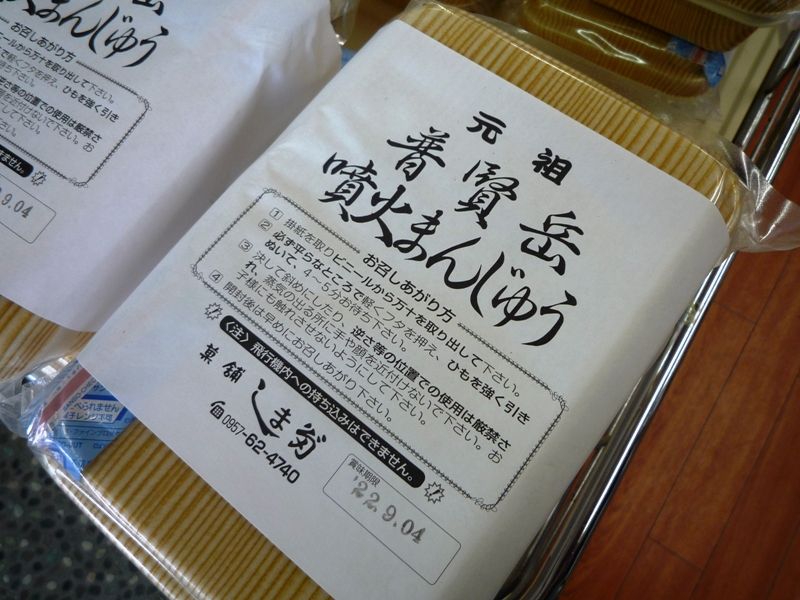 元祖
普賢岳
噴火まんじゅう
お召しあがり方
① 掛紙を取りビニールから万十を取り出して下さい。
② 必ず平らなところで軽くフタを押え、ひもを強く引き
ぬいて、4～5分お待ち下さい。
③ 決して斜めにしたり、逆さ等の位置での使用は厳禁さ
れ、蒸気の出る所に手や顔を近付けないで下さい。お
子様にも触れさせないようにして下さい。
④ 開封後は早めにお召しあがり下さい。
〈注〉飛行機内への持ち込みはできません。
菓舗
☎0957-62-4740
賞味期限
'22.9.04
んじゅう
お召しあがり方
ルから万十を取り出して下さい。
軽くフタを押え、ひもを強く引き
下さい。
逆さ等の位置での使用は厳禁さ
を近付けないで下さい。お
下さい。
きません。
9.04
べられません